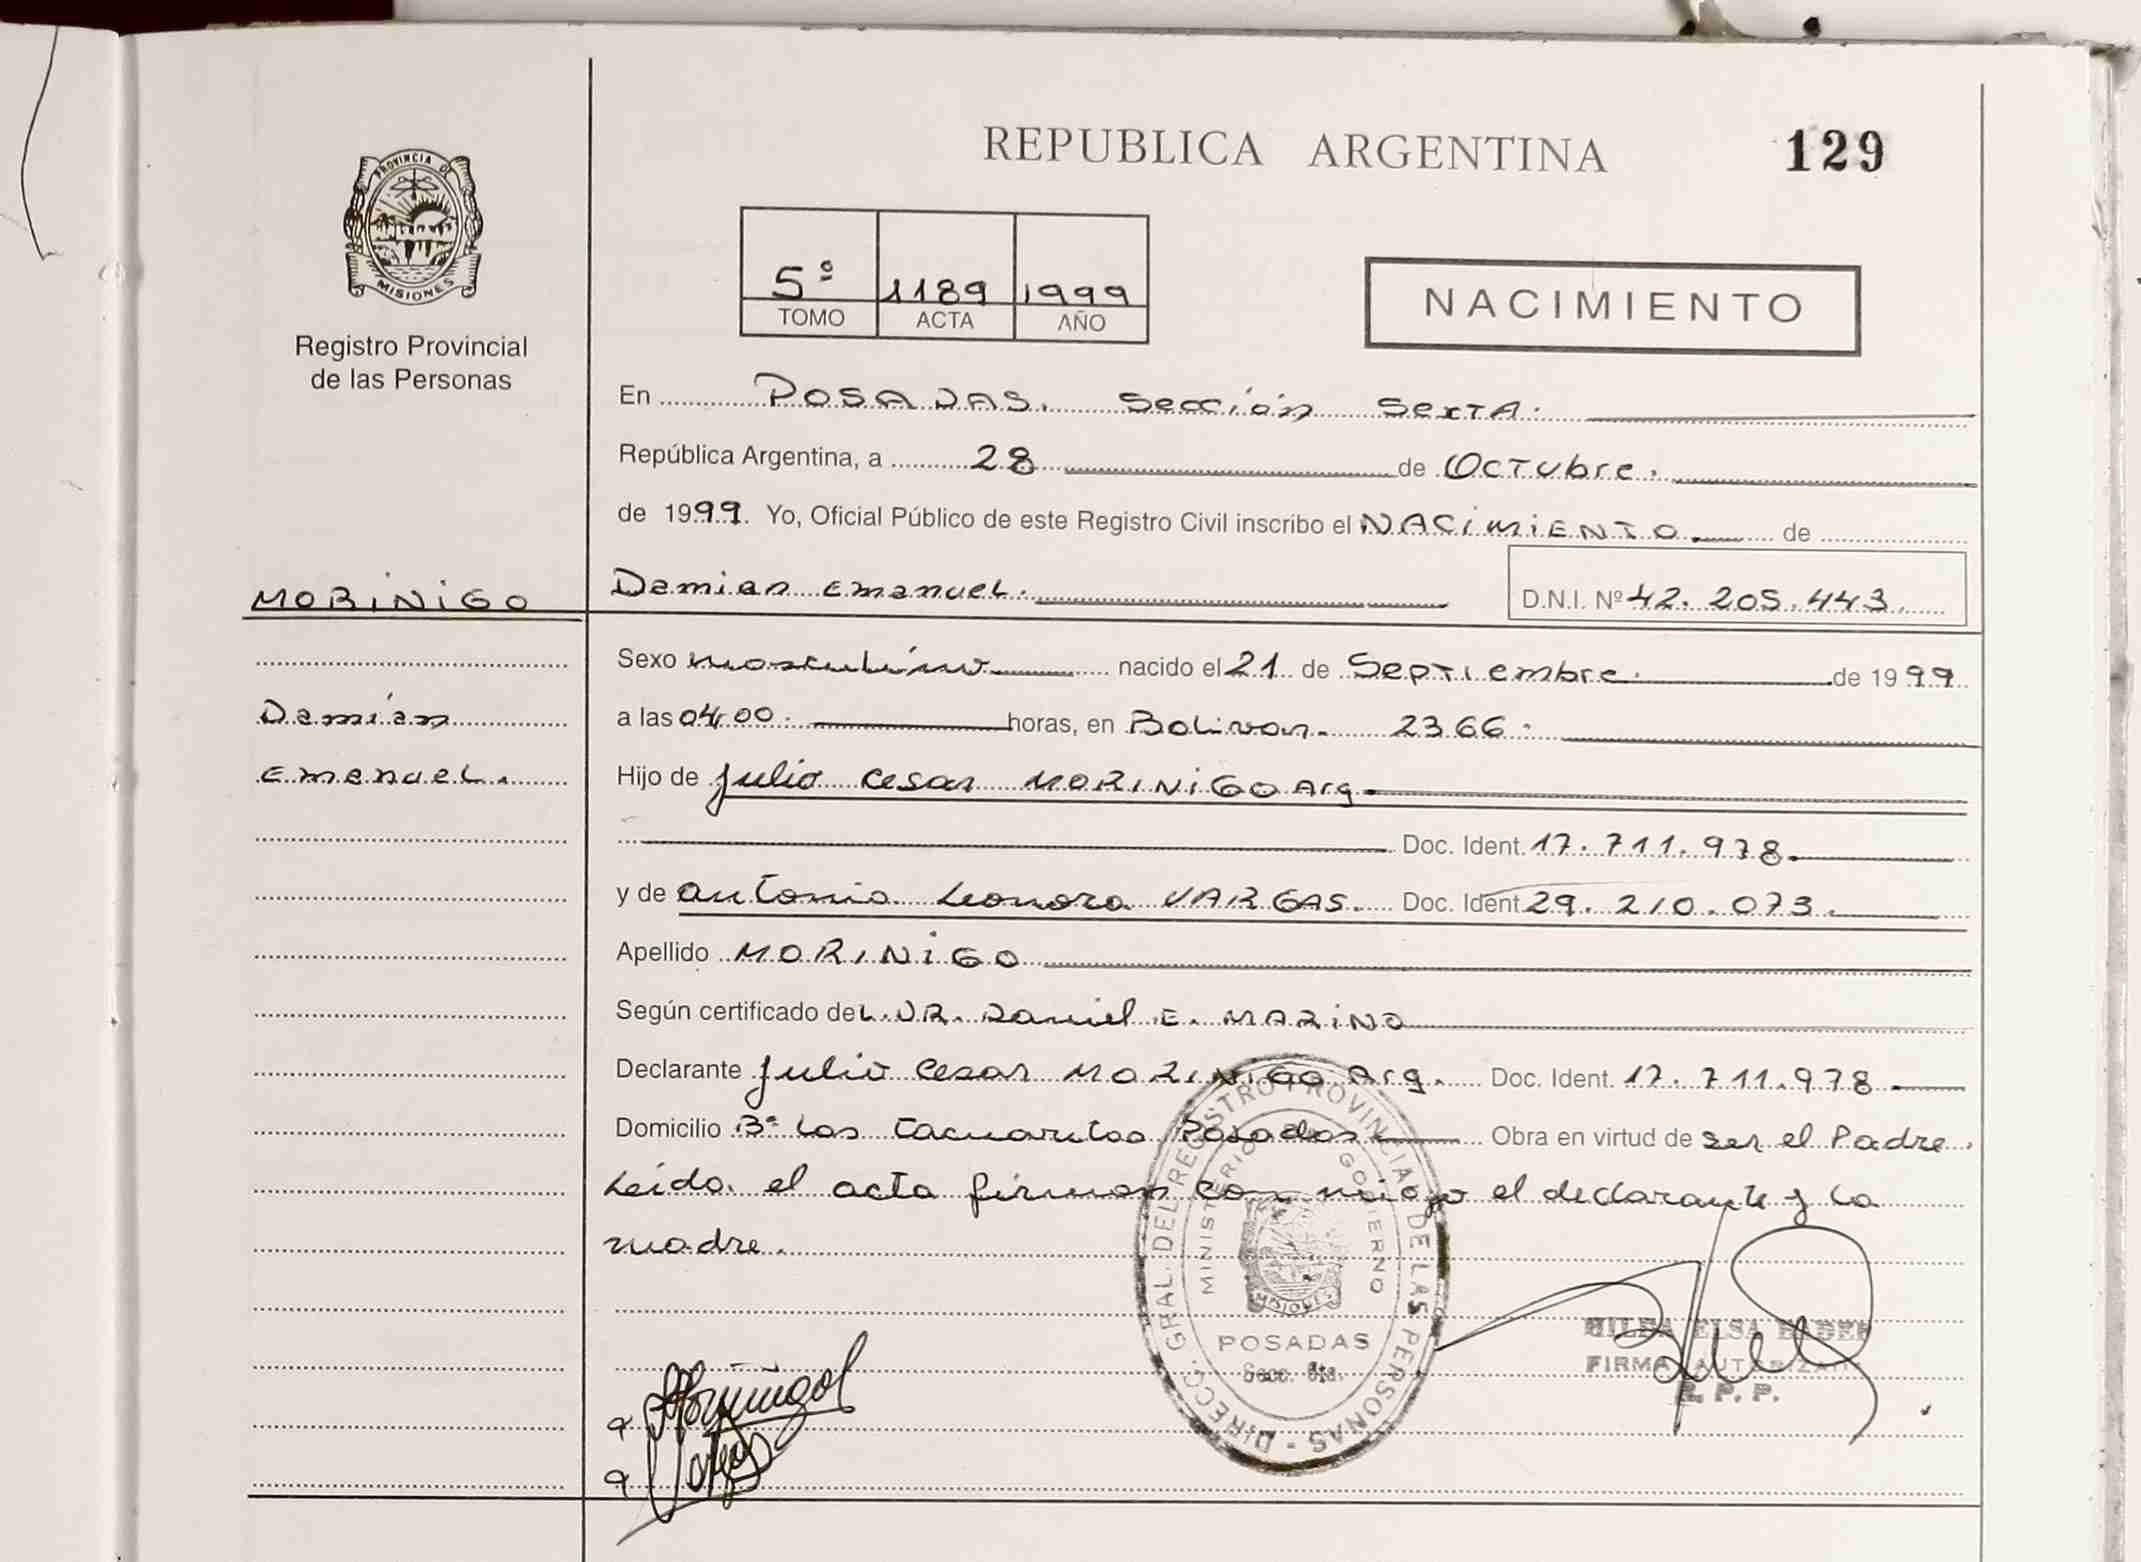 REPUBLICA ARGENTINA
129
PROVINCIA DE
MISIONES
Registro Provincial
de las Personas
5º 1189 1999
TOMO ACTA AÑO
NACIMIENTO
En POSADAS. Sección Sexta.
República Argentina, a 28 de Octubre.
de 1999. Yo, Oficial Público de este Registro Civil inscribo el NACIMIENTO de
MORINIGO
Damian Emanuel. D.N.I. Nº 42.205.443.
Sexo masculino nacido el 21 de Septiembre. de 1999
Damián
a las 04,00. horas, en Bolivar. 2366.
Emanuel.
Hijo de Julio Cesar MORINIGO Arg.
Doc. Ident. 17.711.978.
y de Antonia Leonora VARGAS. Doc. Ident 29.210.073.
Apellido MORINIGO
Según certificado del. DR. Daniel E. MARINO
Declarante Julio Cesar MORINIGO Arg. Doc. Ident. 17.711.978.
Domicilio Bº Los Tacuaritas Posadas Obra en virtud de ser el Padre.
Leída el acta firman conmigo el declarante y la
madre.
DIRECC. GRAL. DEL REGISTRO PROVINCIAL DE LAS PERSONAS -
MINISTERIO DE GOBIERNO
MISIONES
POSADAS
Secc. 6ta.
ELSA
FIRMA AUTORIZADA
R. P. P.